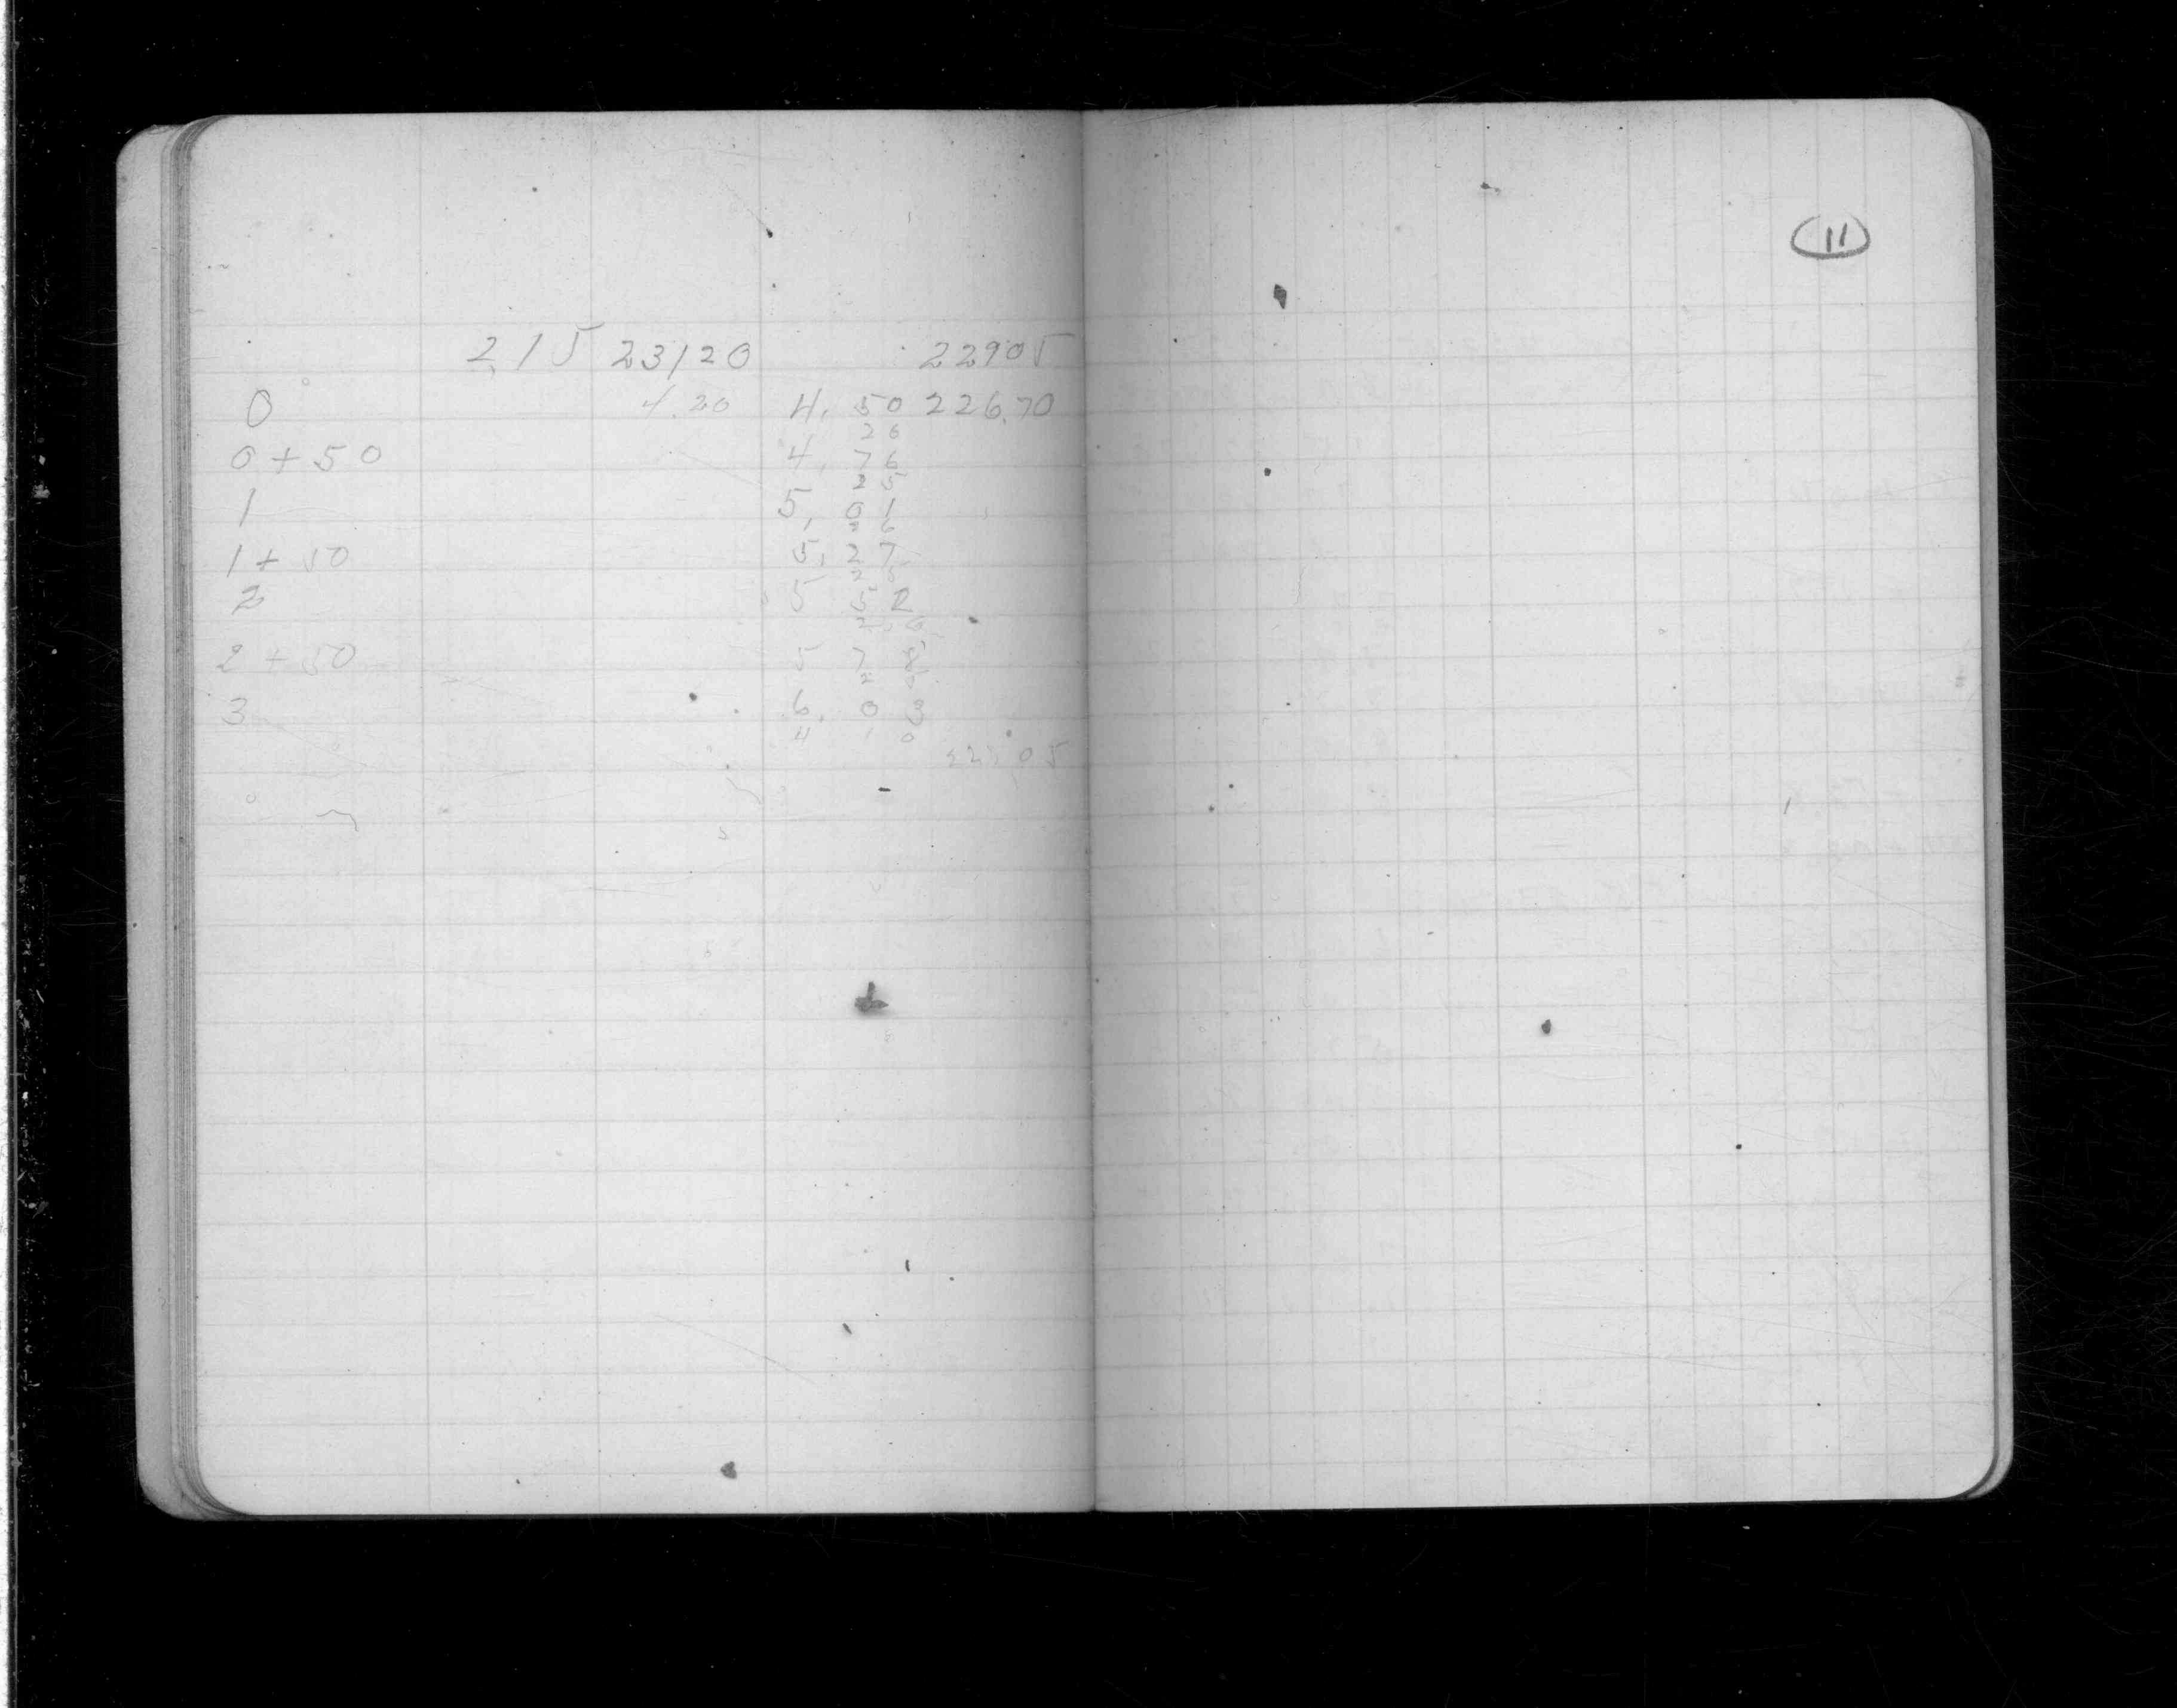 2.15 23120 22905
0 4.20 4.50 226.70
26
0+50 4.76
25
1 5.01
26
1+50 5.27
25
2 5 52
26
2+50 5 78
25
3 6.03
05
(11)